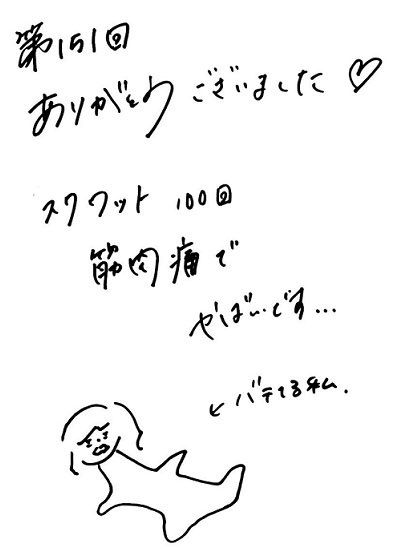 第151回
ありがとうございました♡
スクワット 100回
筋肉痛で
やばいです…
←バテてる私.